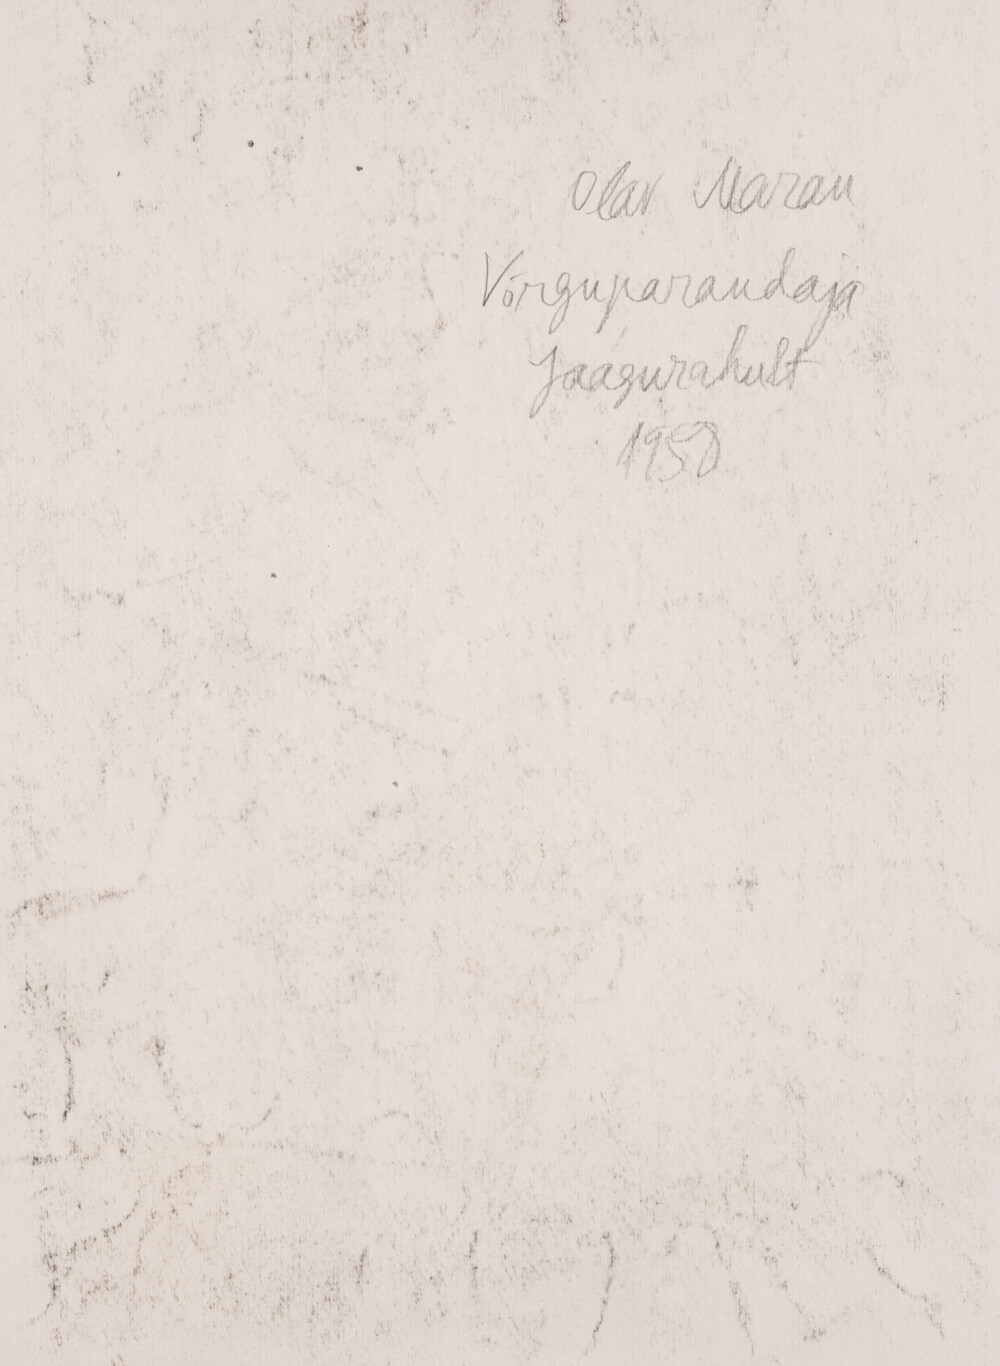 Olav Maran
Võrguparandaja
Jaagurahult
1958